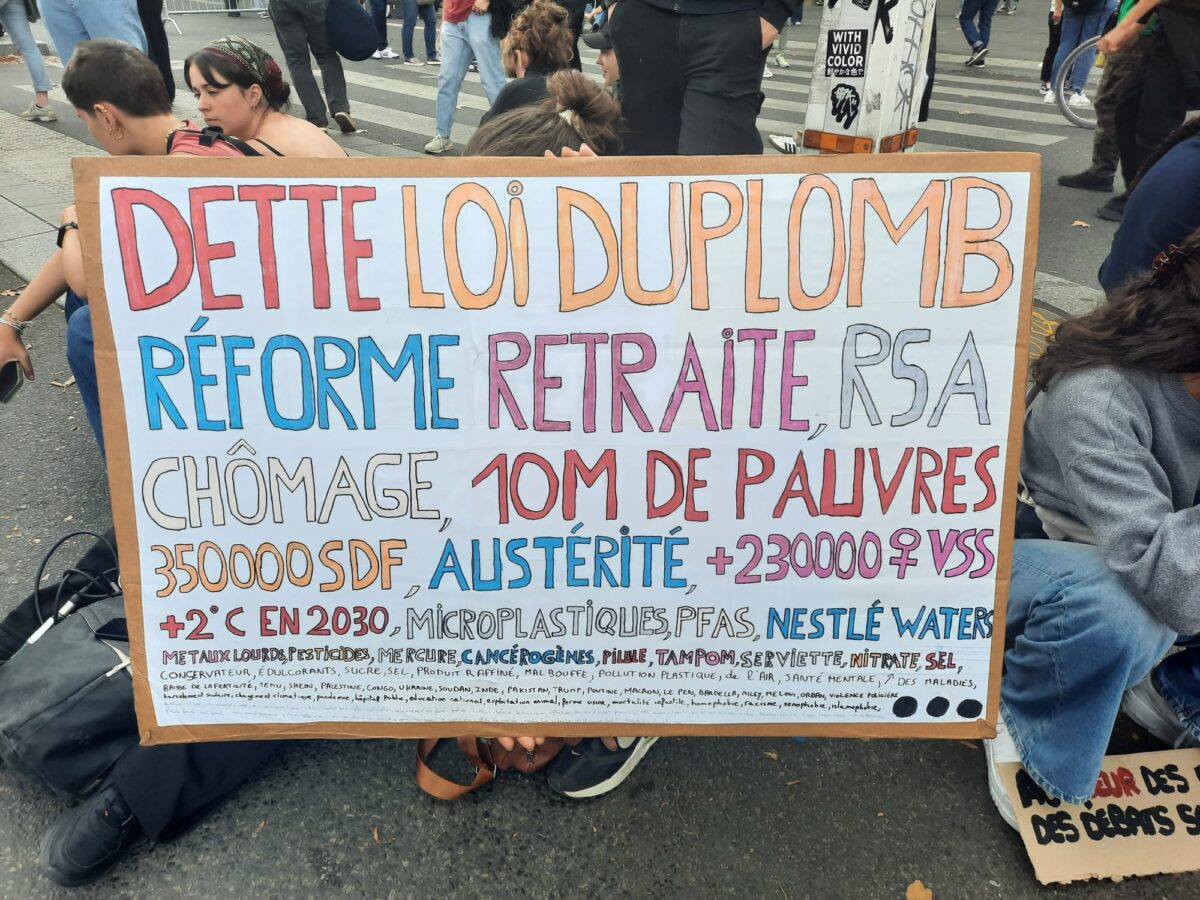 WITH
VIVID
COLOR
鮮やかな色で
DETTE LOI DUPLOMB
RÉFORME RETRAITE, RSA
CHÔMAGE, 10M DE PAUVRES
350000 SDF, AUSTÉRITÉ, +230000 ♀ VSS
+2°C EN 2030, MICROPLASTIQUES, PFAS, NESTLÉ WATERS
METAUX LOURDS, PESTICIDES, MERCURE, CANCÉROGÈNES, PILULE, TAMPOM, SERVIETTE, NITRATE, SEL,
CONSERVATEUR, ÉDULCORANTS, SUCRE, SEL, PRODUIT RAFFINÉ, MAL BOUFFE, POLLUTION PLASTIQUE, de l'AIR, SANTÉ MENTALE, ↗ DES MALADIES,
BAISSE DE LA FERTILITÉ, TEMU, SHEIN, PALESTINE, CONGO, UKRAINE, SOUDAN, INDE, PAKISTAN, TRUMP, POUTINE, MACRON, LE PEN, BARDELLA, MILEY, MELONI, ORBAN, VIOLENCE POLICIÈRE
harcèlement scolaire, changement climatique, pandemie, hôpital public, éducation national, exploitation animal, ferme usine, mortalité infantile, homophobie, racisme, xenophobie, islamophobie,
DES
DES DEBATS